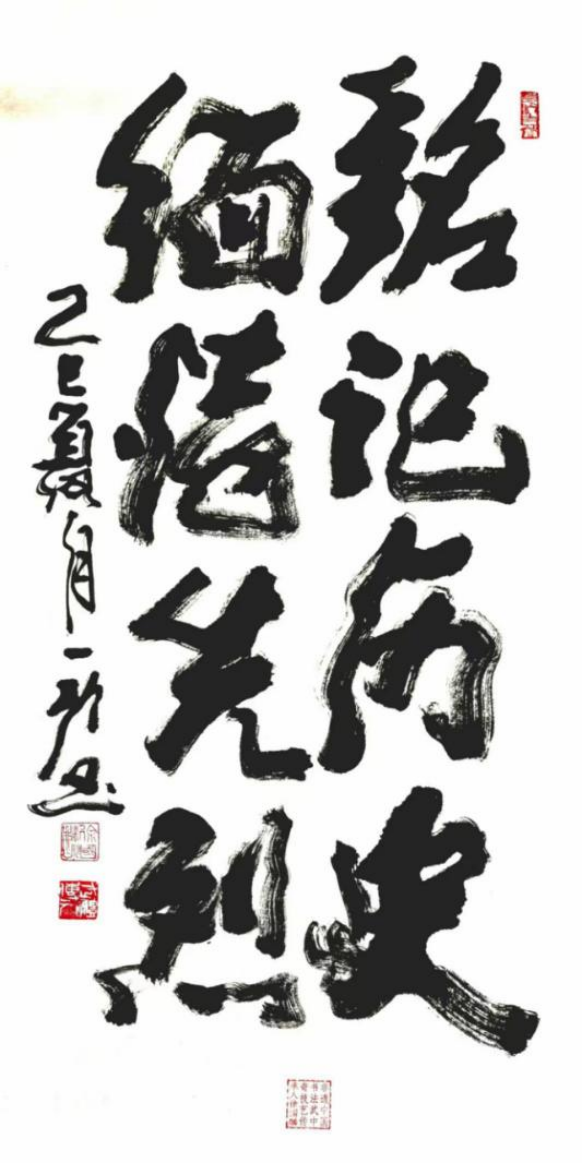 铭记历史
缅怀先烈
乙巳夏月一